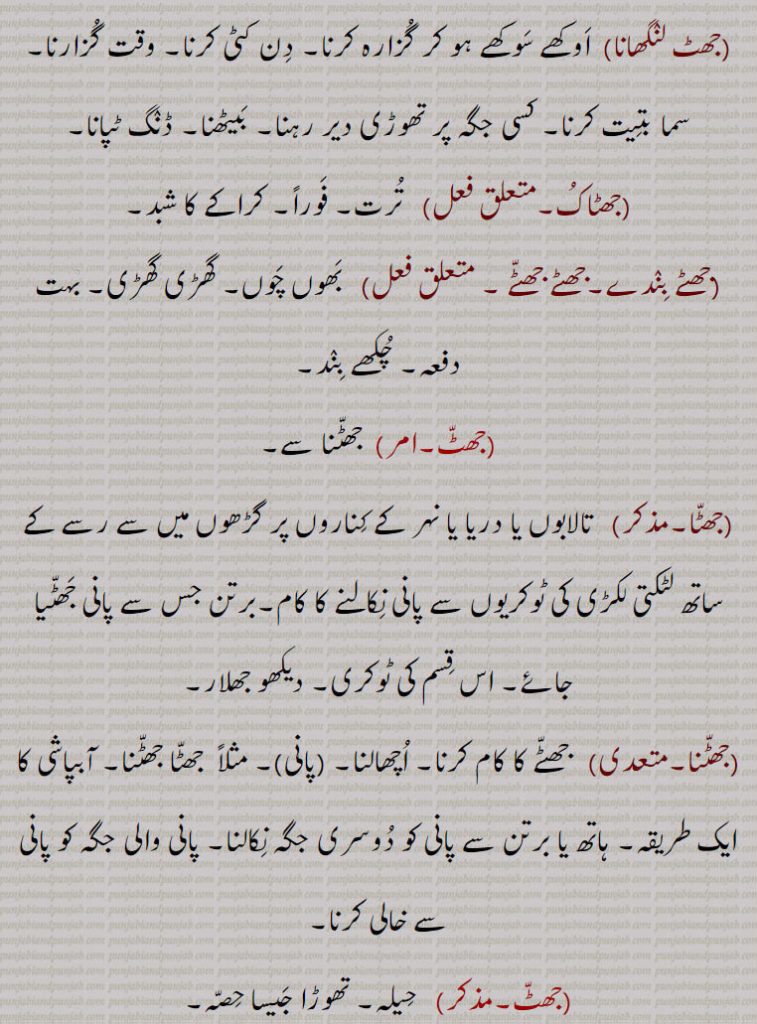 (جھٹ لنگھانا) اَوکھے سَوکھے ہو کر گُزارہ کرنا۔ دِن کٹی کرنا۔ وقت گُزارنا۔
سما بتِیت کرنا۔ کسی جگہ پر تھوڑی دیر رہنا۔ بَیٹھنا۔ ڈنگ ٹپانا۔
(جھٹاکُ۔متعلق فعل) تُرت۔ فَوراً۔ کراکے کا شبد۔
(جھٹے بِنْدے۔جھٹے جھٹّے ۔ متعلق فعل) بَھوں چَوں۔ گھڑی گھڑی۔ بہت
دفعہ۔ چُکھے بِنْد۔
(جھٹّ۔امر) جھٹّنا سے۔
(جھٹّا۔مذکر) تالابوں یا دریا یا نہر کے کِناروں پر گڑھوں میں سے رسے کے
ساتھ لٹکتی لکڑی کی ٹوکریوں سے پانی نِکالنے کا کام۔برتن جس سے پانی جَھٹّیا
جائے۔ اس قِسم کی ٹوکری۔ دیکھو جھلار۔
(جھٹّنا۔متعدی) جھٹّے کا کام کرنا۔ اُچھالنا۔ (پانی)۔ مثلاً جھٹّا جھٹّنا۔ آبپاشی کا
ایک طریقہ۔ ہاتھ یا برتن سے پانی کو دُوسری جگہ نِکالنا۔ پانی والی جگہ کو پانی
سے خالی کرنا۔
(جھٹّ۔مذکر) حِیلہ۔ تھوڑا جَیسا حِصّہ۔